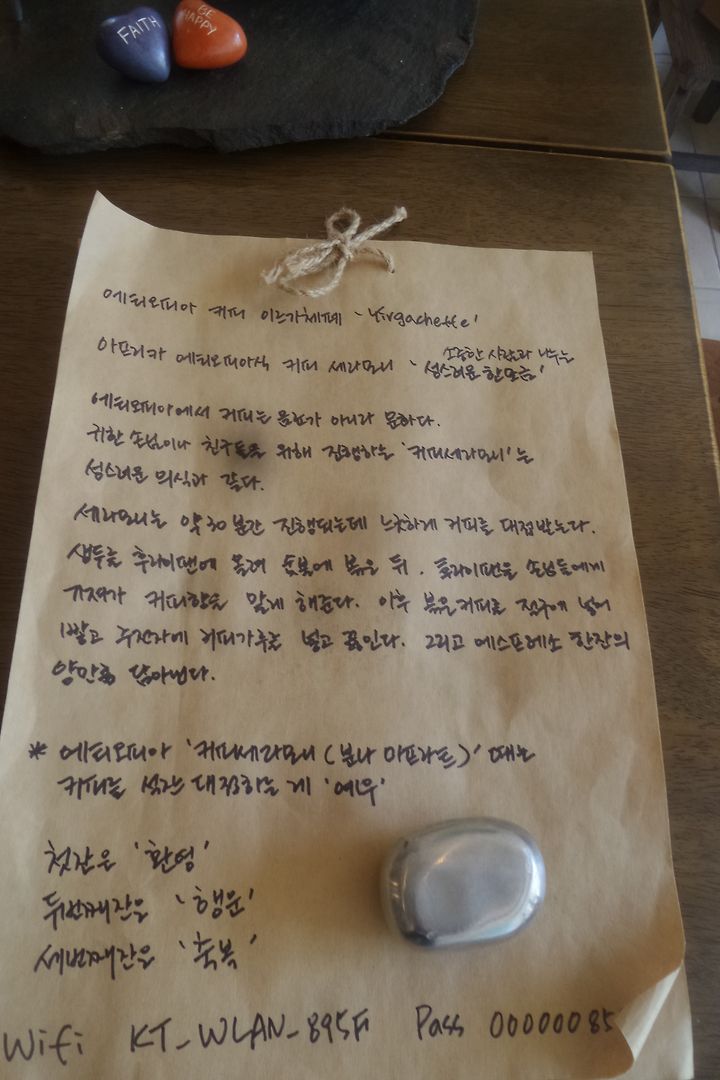 FAITH
BE
HAPPY
에티오피아 커피 이르가체페 'Yirgacheffe'
아프리카 에티오피아식 커피 세라모니 '소중한 사람과 나누는
성스러운 한모금'
에티오피아에서 커피는 음료가 아니라 문화다.
귀한 손님이나 친구들을 위해 진행하는 '커피세라모니'는
성스러운 의식과 같다.
세라모니는 약 30분간 진행되는데 느긋하게 커피를 대접받는다.
생두를 후라이팬에 올려 숯불에 볶은 뒤, 후라이팬을 손님들에게
가져가 커피향을 맡게 해준다. 이후 볶은커피를 절구에 넣어
빻고 주전자에 커피가루를 넣고 끓인다. 그리고 에스프레소 한잔의
양만큼 담아낸다.
* 에티오피아 '커피세라모니(분나 마프라트)' 때는
커피를 석잔 대접하는 게 '예우'
첫잔은 '환영'
두번째잔은 '행운'
세번째잔은 '축복'
Wifi KT_WLAN_895F Pass 00000085